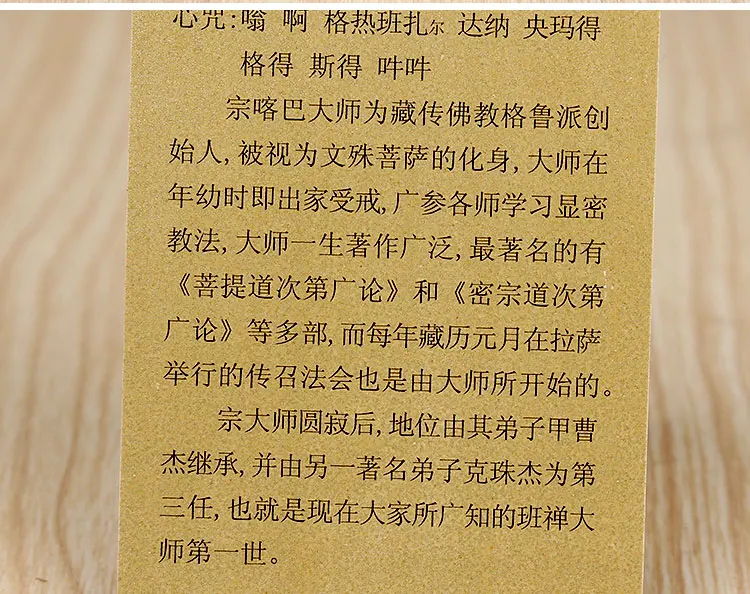 心咒:嗡 啊 格热班扎尔 达纳 央玛得
格得 斯得 吽吽
宗喀巴大师为藏传佛教格鲁派创
始人,被视为文殊菩萨的化身,大师在
年幼时即出家受戒,广参各师学习显密
教法,大师一生著作广泛,最著名的有
《菩提道次第广论》和《密宗道次第
广论》等多部,而每年藏历元月在拉萨
举行的传召法会也是由大师所开始的。
宗大师圆寂后,地位由其弟子甲曹
杰继承,并由另一著名弟子克珠杰为第
三任,也就是现在大家所广知的班禅大
师第一世。